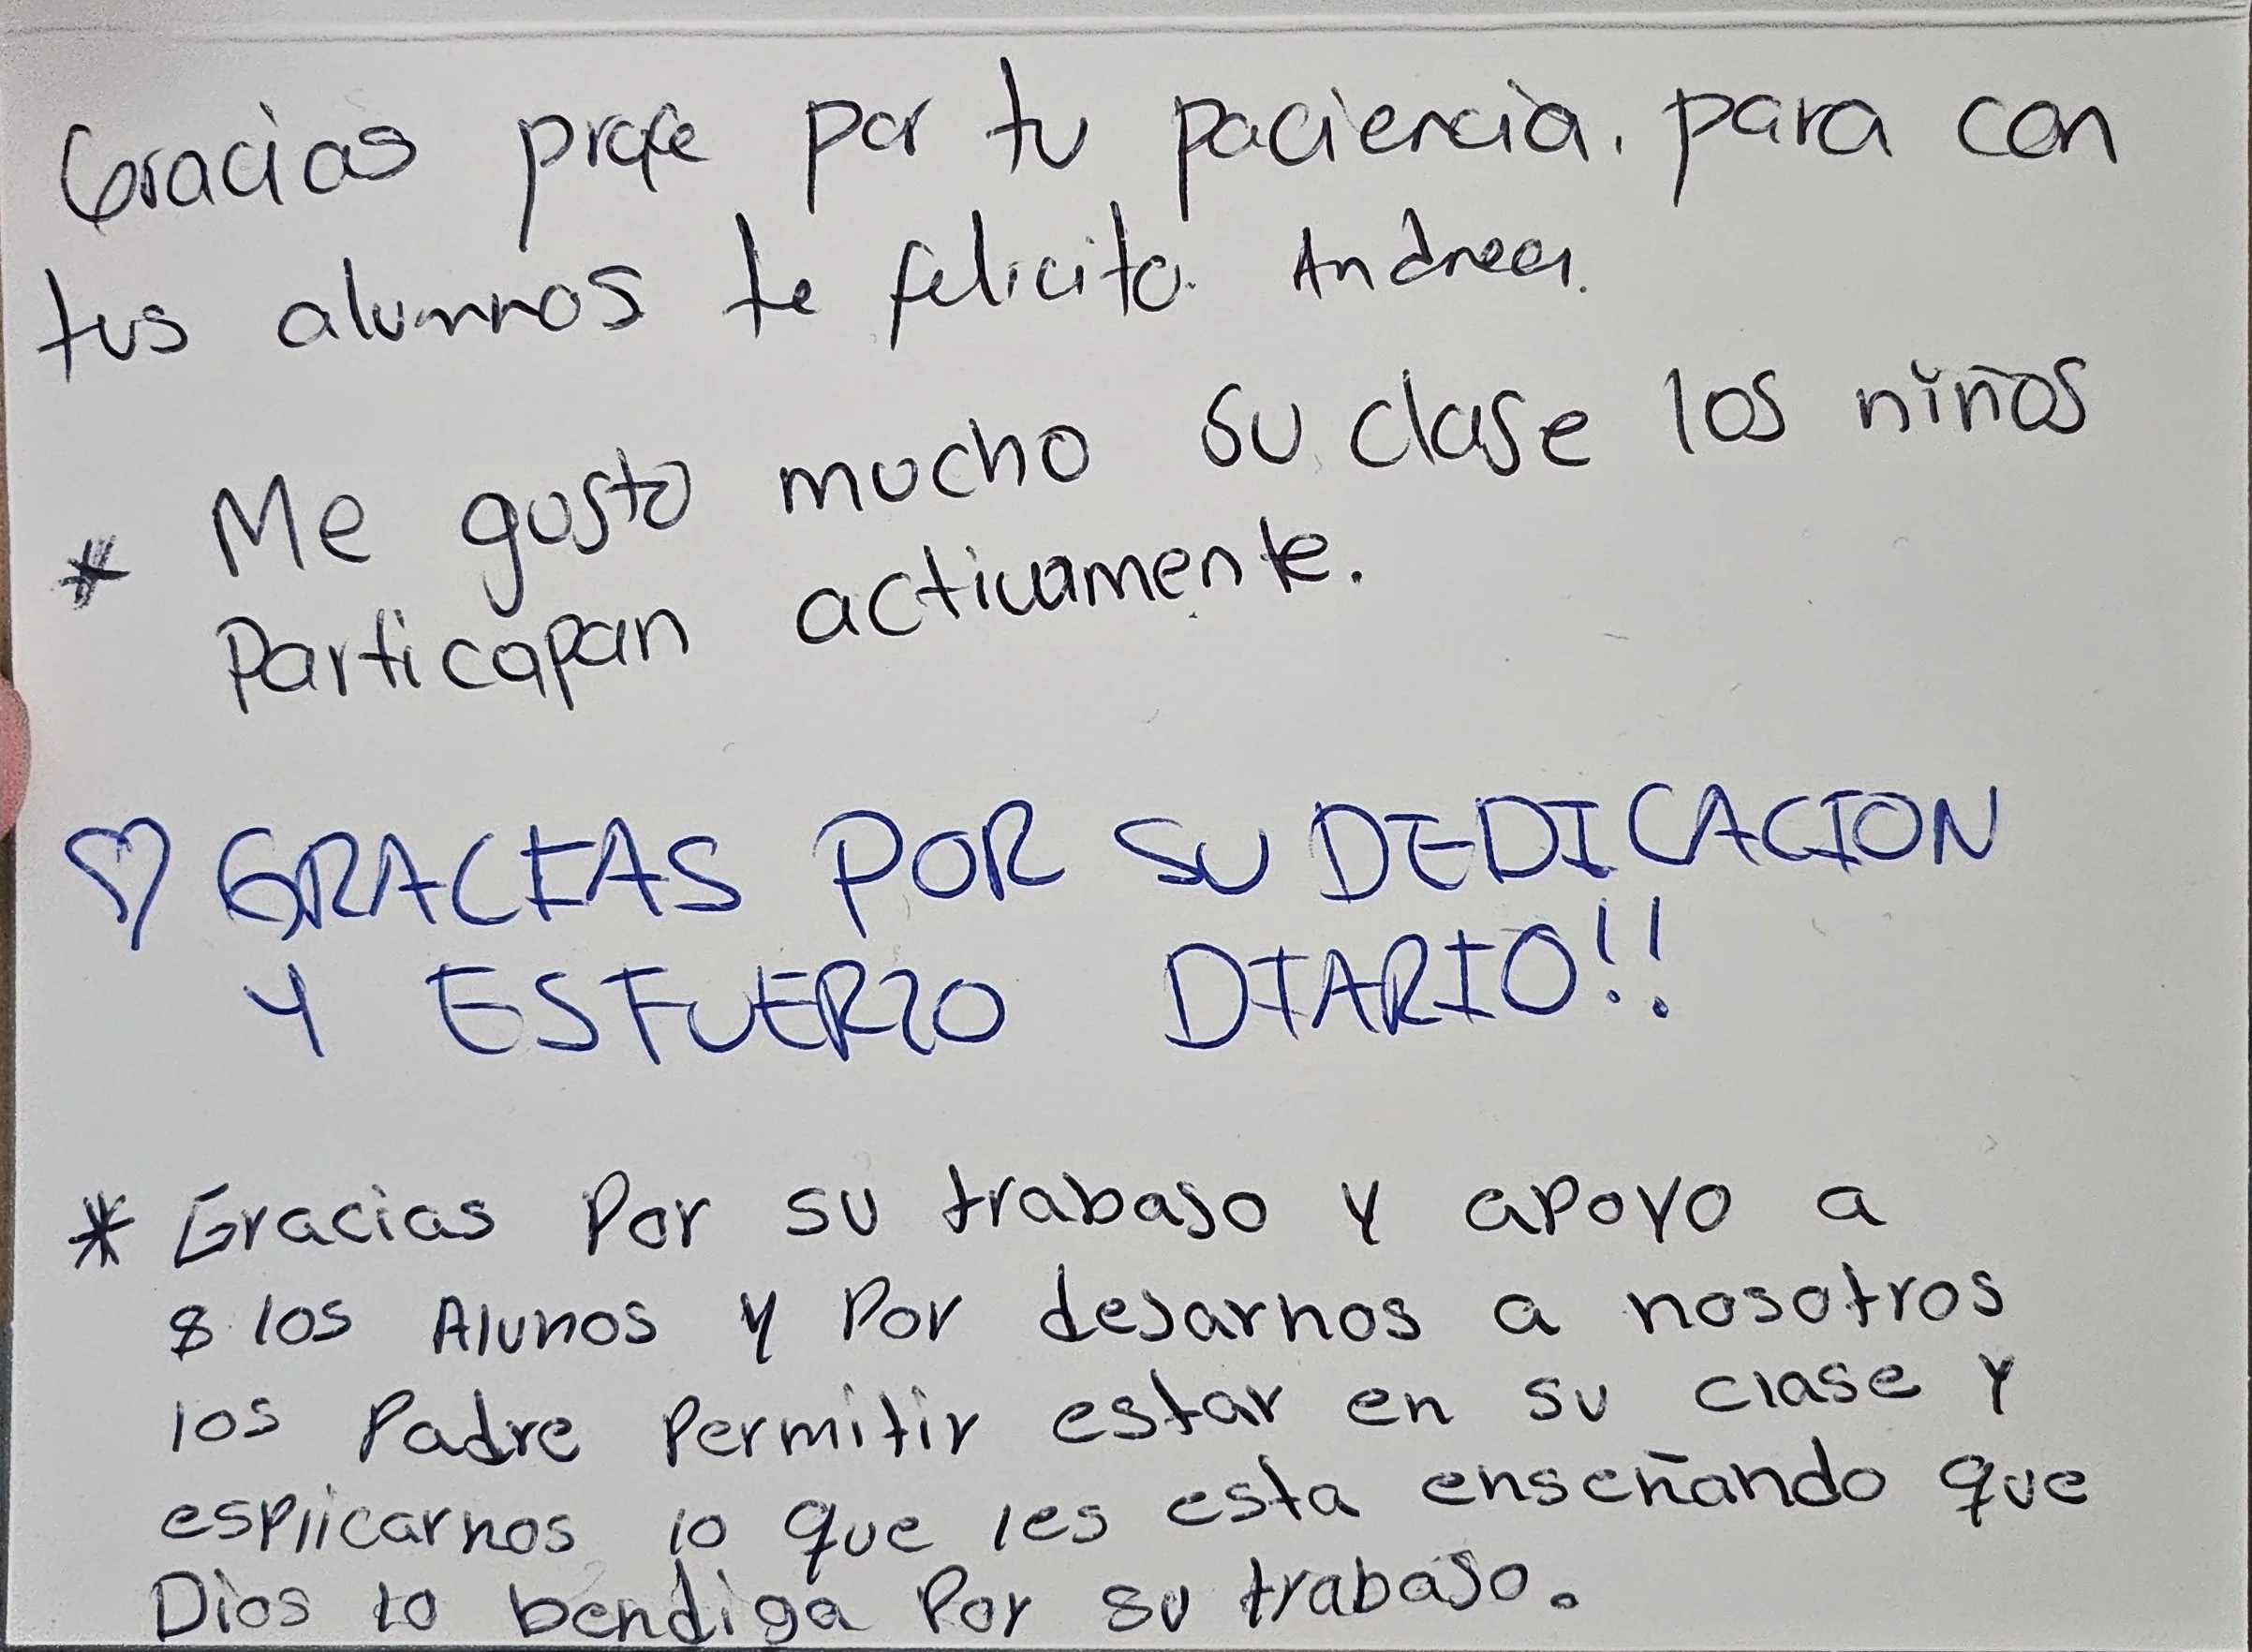 Gracias profe por tu paciencia. para con
tus alumnos te felicito. Andrea.
* Me gusto mucho su clase los niños
Particapan activamente.
♡ GRACIAS POR SU DEDICACION
Y ESFUERZO DIARIO!!
* Gracias Por su trabajo y apoyo a
los Alunos y Por dejarnos a nosotros
los Padre Permitir estar en su clase y
esplicarnos lo que les esta enseñando que
Dios lo bendiga Por su trabajo.